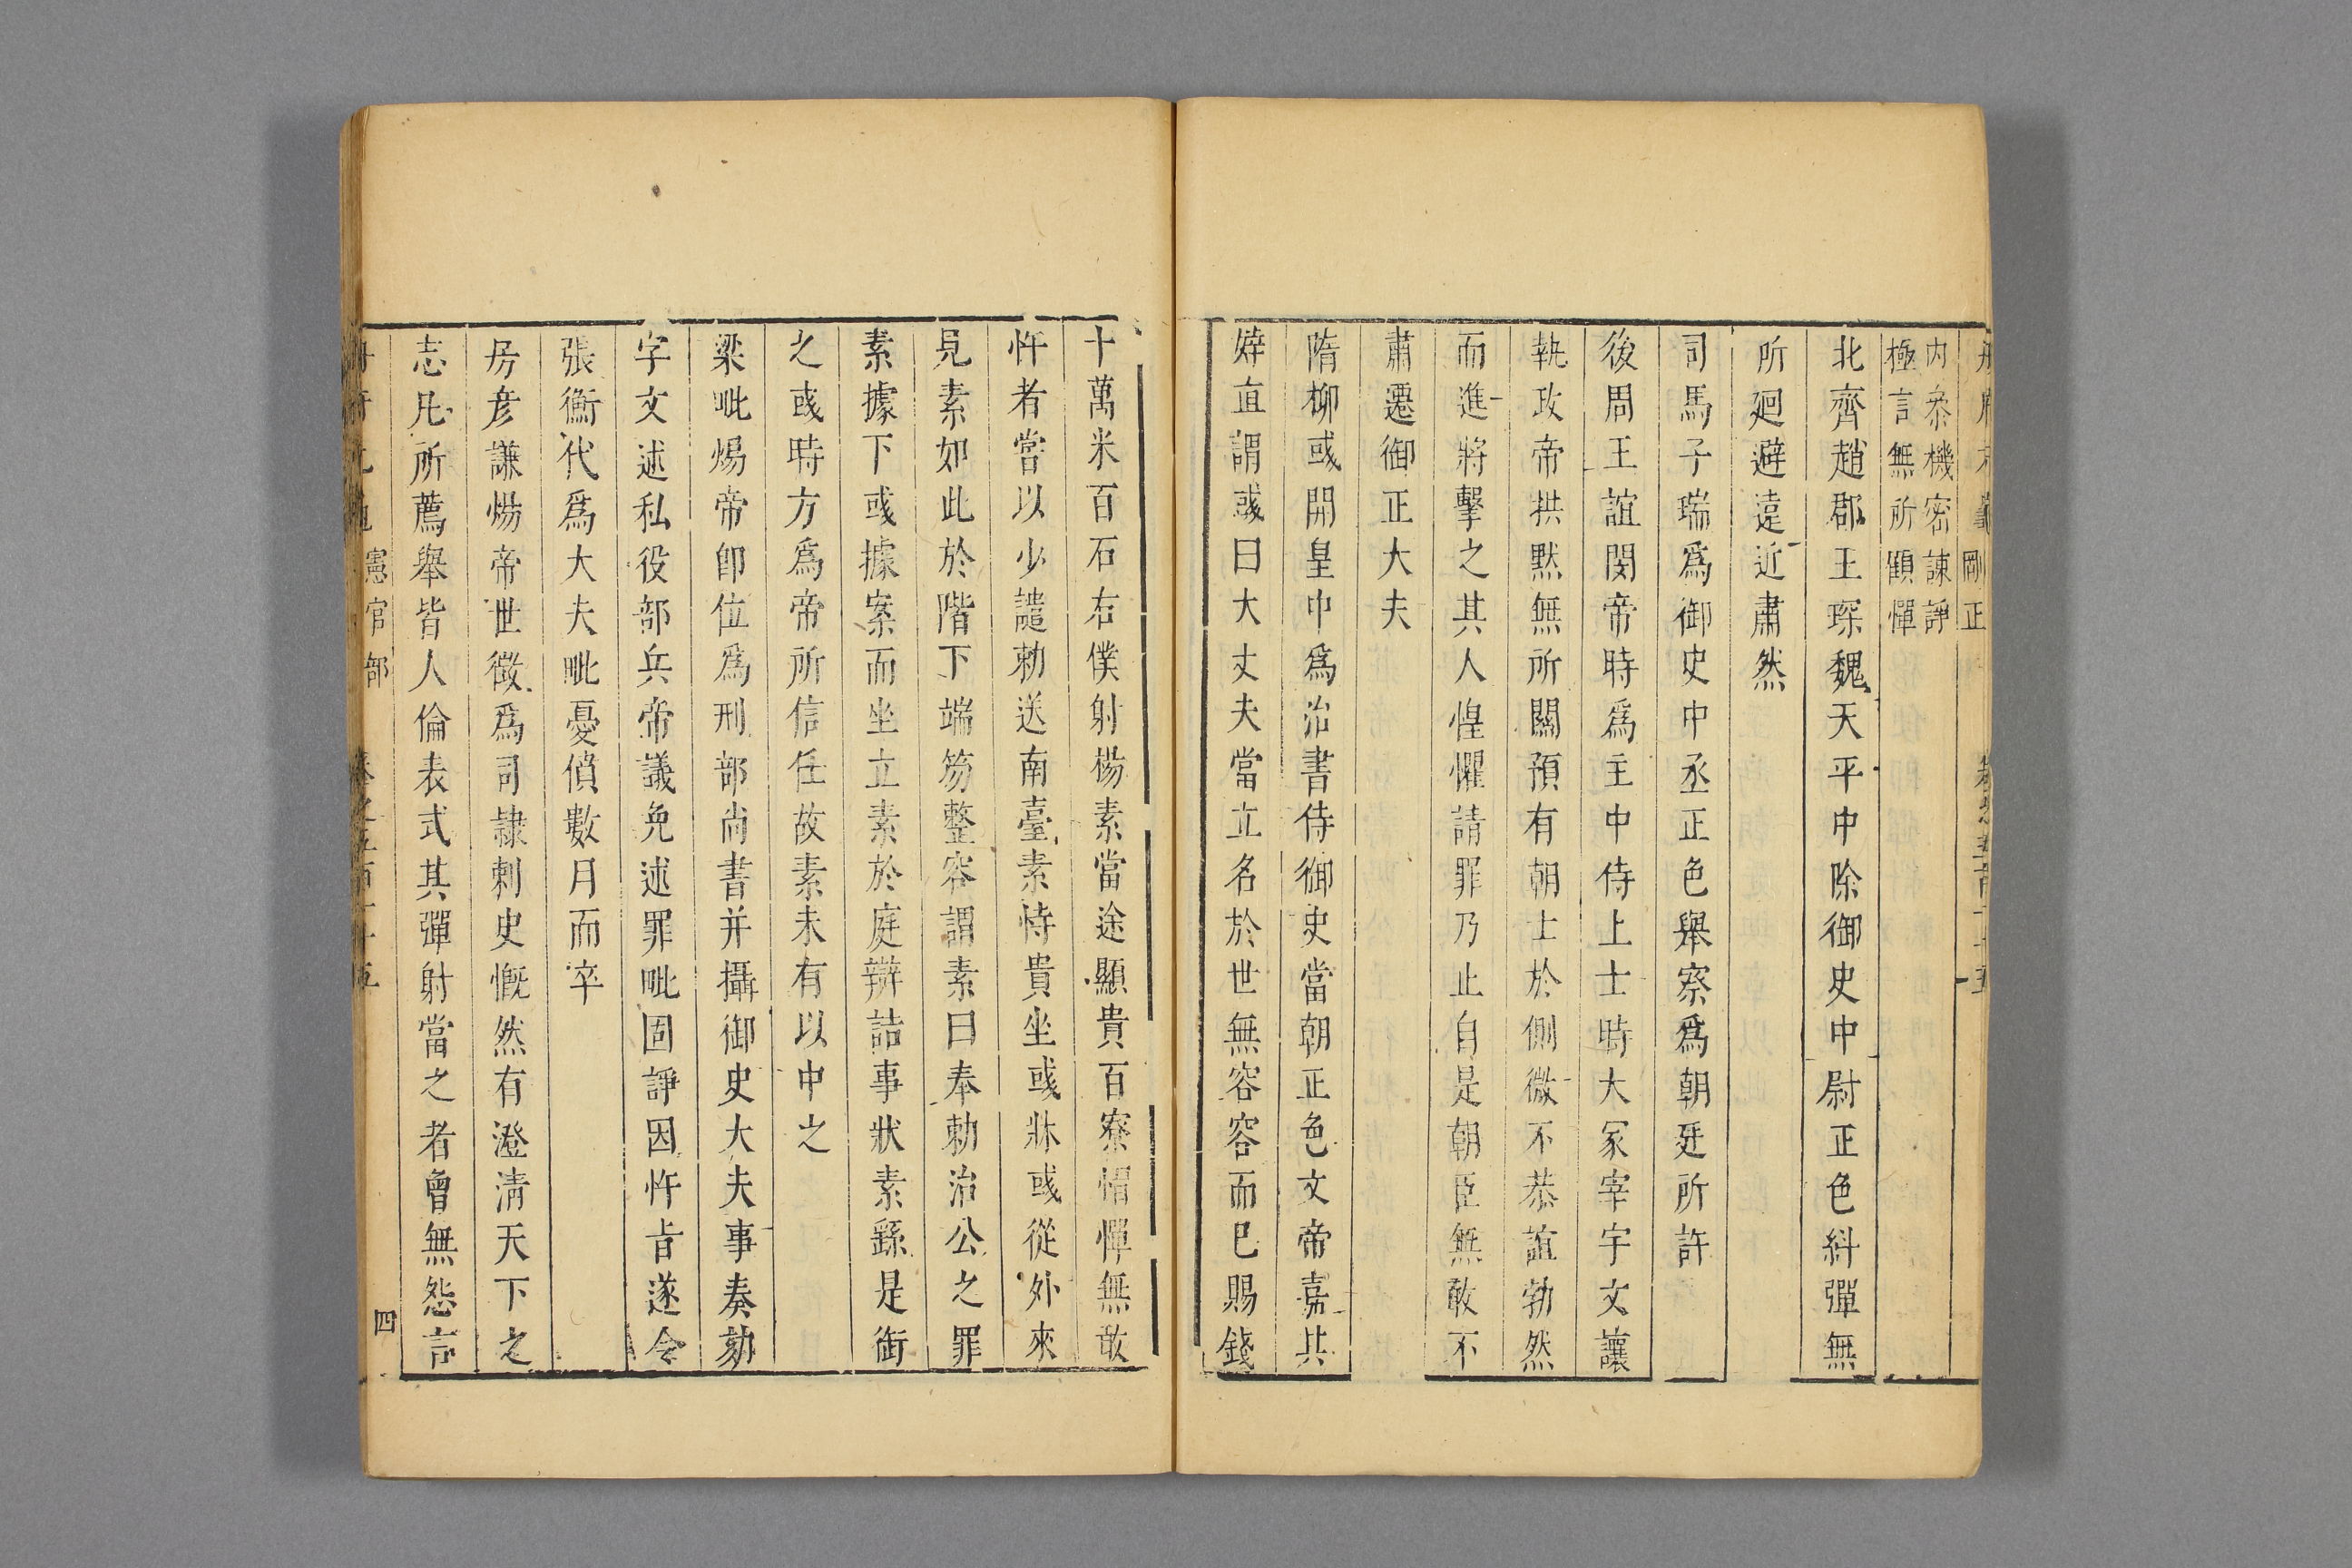 剛正
内叅機密諫諍
極言無所顧憚
北齊趙郡王琛魏天平中除御史中尉正色糾彈無
所廻避遠近肅然
司馬子瑞爲御史中丞正色舉察爲朝廷所許
後周王誼閔帝時爲主中侍上士時大冢宰宇文讓
執政帝拱默無所關預有朝士於側微不恭誼勃然
而進將擊之其人惶懼請罪乃止自是朝臣無敢不
肅遷御正大夫
隋柳彧開皇中爲治書侍御史當朝正色文帝嘉其
婞直謂彧曰大丈夫當立名於世無容容而已賜錢
十萬米百石右僕射楊素當途顯貴百寮慴憚無敢
忤者嘗以少譴勅送南臺素恃貴坐彧牀彧從外來
見素如此於階下端笏整容謂素曰奉勅治公之罪
素據下彧據案而坐立素於庭辯詰事狀素繇是銜
之彧時方爲帝所信任故素未有以中之
梁毗煬帝卽位爲刑部尚書并攝御史大夫事奏劾
宇文述私役部兵帝議免述罪毗固諍因忤旨遂令
張衡代爲大夫毗憂憤數月而卒
房彦謙煬帝世徵爲司隷刺史慨然有澄清天下之
志凡所薦舉皆人倫表式其彈射當之者曾無怨言
憲官部
四